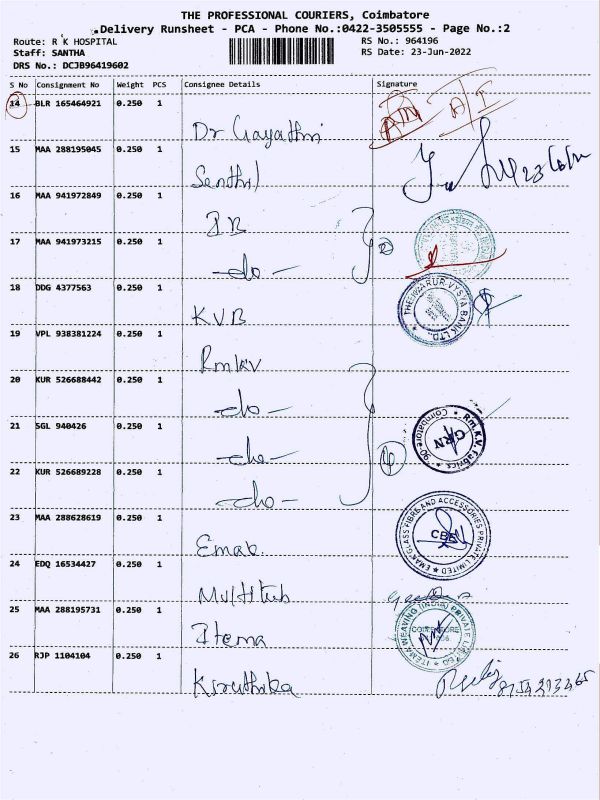 THE PROFESSIONAL COURIERS, Coimbatore
Delivery Runsheet - PCA - Phone No.:0422-3505555 - Page No.:2
Route: R K HOSPITAL
RS No.: 964196
Staff: SANTHA
RS Date: 23-Jun-2022
DRS No.: DCJB96419602
S No Consignment No Weight PCS Consignee Details Signature
14 BLR 165464921 0.250 1
Dr Gayathri
15 MAA 288195045 0.250 1
Senthil
16 MAA 941972849 0.250 1
IB
17 MAA 941973215 0.250 1
-do-
2
18 DDG 4377563 0.250 1
KVB
THE KARUR VYSYA BANK LTD.
19 VPL 938381224 0.250 1
Rmkv
20 KUR 526688442 0.250 1
-do-
21 SGL 940426 0.250 1
-do-
4
Rm.K.V. Fabrics
Coimbatore
GRN
22 KUR 526689228 0.250 1
-do-
23 MAA 288628619 0.250 1
Emab
EMAK GLASS FIBRE AND ACCESSORIES PRIVATE LIMITED
CBE
24 EDQ 16534427 0.250 1
25 MAA 288195731 0.250 1
Itema
ITEMA WEAVING (INDIA) PRIVATE LIMITED
26 RJP 1104104 0.250 1
Kiruthika